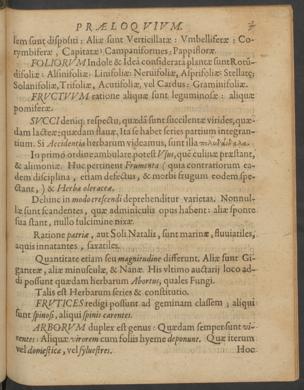 PRÆLOQVIVM.
lem sunt dispositi: Aliæ sunt Verticillatæ: Vmbelliferæ: Co-
rymbiferæ, Capitatæ: Campaniformes: Pappiflóræ.
FOLIORVM Indole & Idea consideratâ plantæ sunt Rotũ-
difoliæ: Alsinifoliæ: Linifoliæ: Neruifoliæ, Asprifoliæ: Stellatę;
Solanifoliæ, Trifoliæ, Acutifoliæ, vel Cardus: Graminifoliæ.
FRVCTIVM ratione aliquæ sunt leguminosæ: aliquæ
pomiferæ.
SVCCI deniq; respectu, quædã sunt succilentæ virides, quæ-
dam lacteæ; quædam flauæ. Ita se habet series partium integran-
tium. Si Accidentia herbarum videamus, sunt illa
In primo ordine ambulare potest Vsus, què cultiuæ præstant,
& alimoniæ. Huc pertinent Frumenta (quia contrariorum ea-
dem disciplina, etiam defectus, & morbi frugum eodem spe-
ctant,) & Herbæ oleraceæ.
Dehinc in modo crescendi deprehenditur varietas. Nonnul-
læ sunt scandentes, quæ adminiculi opus habent: aliæ sponte
sua stant, nullo fulcimine nixæ.
Ratione patriæ, aut Soli Natalis, sunt marinæ, fluuiatiles,
aquis innatantes, saxatiles.
Quantitate etiam seu magnitudine differunt. Aliæ sunt Gi-
ganteæ, aliæ minusculæ, & Nanæ. His vltimo auctarij loco ad-
di possunt quædam herbarum Abortus, quales Fungi.
Talis est Herbarum series & constitutio.
FRVTICES redigi possunt ad geminam classem; aliqui
sunt spinosi, aliqui spinis carentes.
ARBORVM duplex est genus: Quædam semper sunt vi-
rentes: Aliquæ virorem cum foliis hyeme deponunt. Quæ iterum
vel domesticæ, vel sylvestres.
Hoc